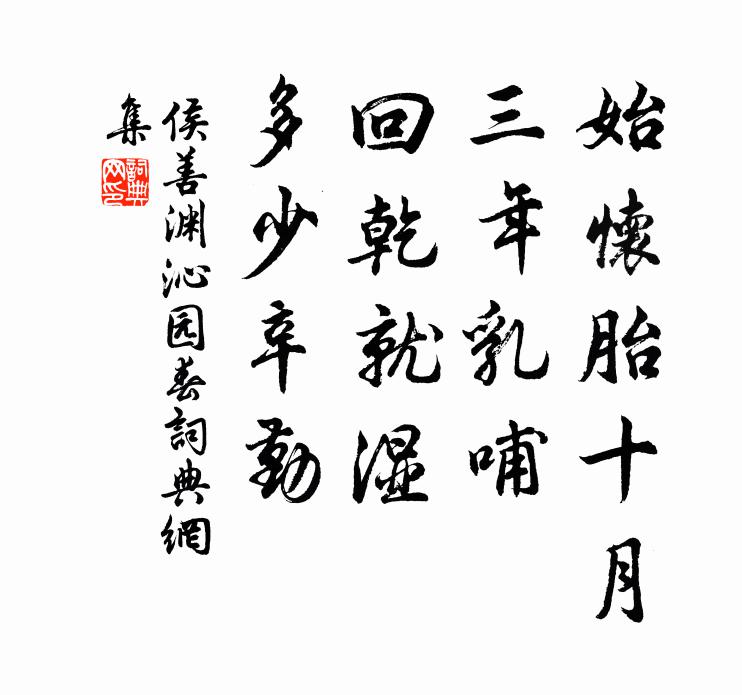 始懷胎十月
三年乳哺
回乾就湿
多少辛勤
侯善渊沁园春詞典網
集
詞典
网印